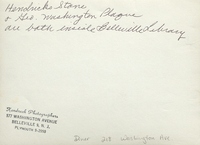 Hendricks Stone
& Geo. Washington Plaque
are both inside Belleville Library
Photographers
827 WASHINGTON AVENUE
BELLEVILLE 9, N. J.
PLYMOUTH
Washington Ave